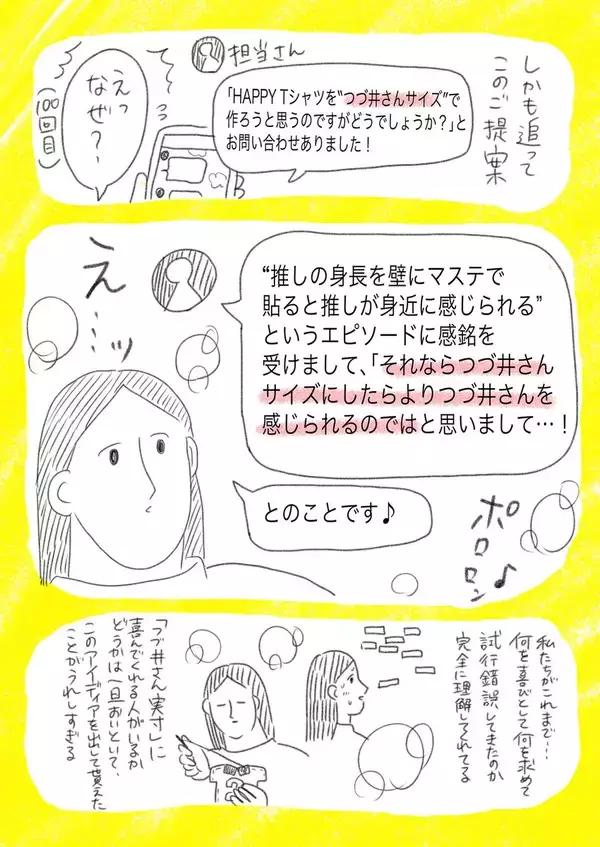 しかも追って
このご提案
担当さん
「HAPPY Tシャツを"つづ井さんサイズ"で
作ろうと思うのですがどうでしょうか？」と
お問い合わせありました！
えっ
なぜ？
(100回目)
B
"推しの身長を壁にマステで
貼ると推しが身近に感じられる"
というエピソードに感銘を
受けまして、「それならつづ井さん
サイズにしたらよりつづ井さんを
感じられるのではと思いまして…！
え…ッ
とのことです♪
ポロロン♪
私たちがこれまで…
何を喜びとして何を求めて
試行錯誤してきたのか
完全に理解してくれてる
「つづ井さん実寸」に
喜んでくれる人がいるか
どうかは一旦おいといて、
このアイディアを出して貰えた
ことがうれしすぎる